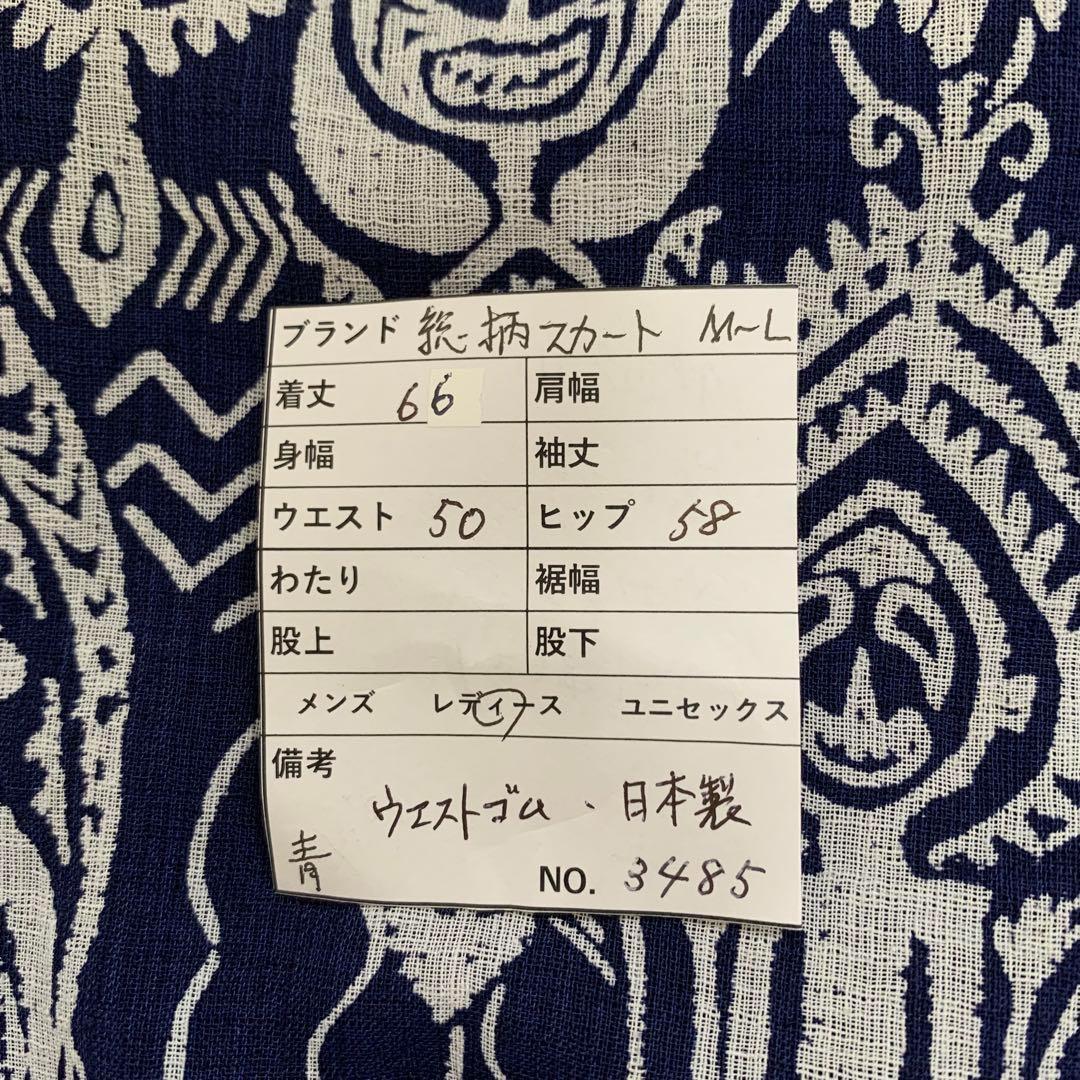 ブランド 総柄スカート M~L
着丈 66 肩幅
身幅 袖丈
ウエスト 50 ヒップ 58
わたり 裾幅
股上 股下
メンズ レディース ユニセックス
備考
ウエストゴム、日本製
青 NO. 3485